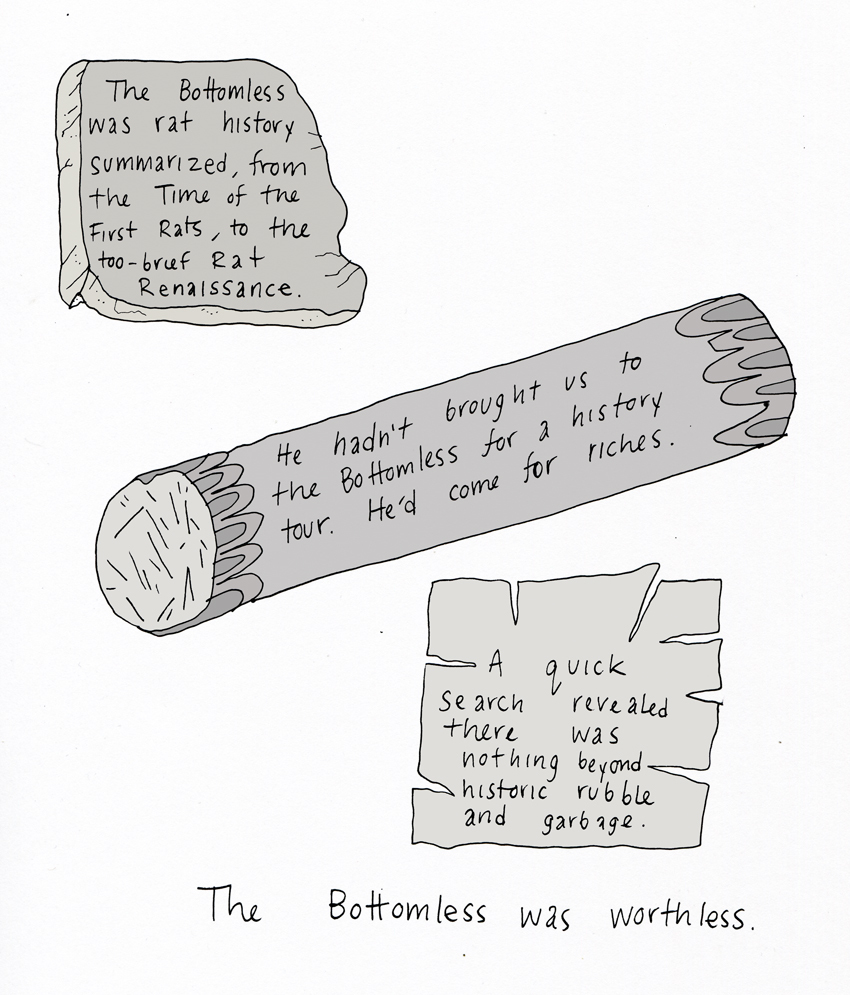 The Bottomless
was rat history
summarized, from
the Time of the
First Rats, to the
too-brief Rat
Renaissance.
He hadn't brought us to
the Bottomless for a history
tour. He'd come for riches.
A quick
search revealed
there was
nothing beyond
historic rubble
and garbage.
The Bottomless was worthless.